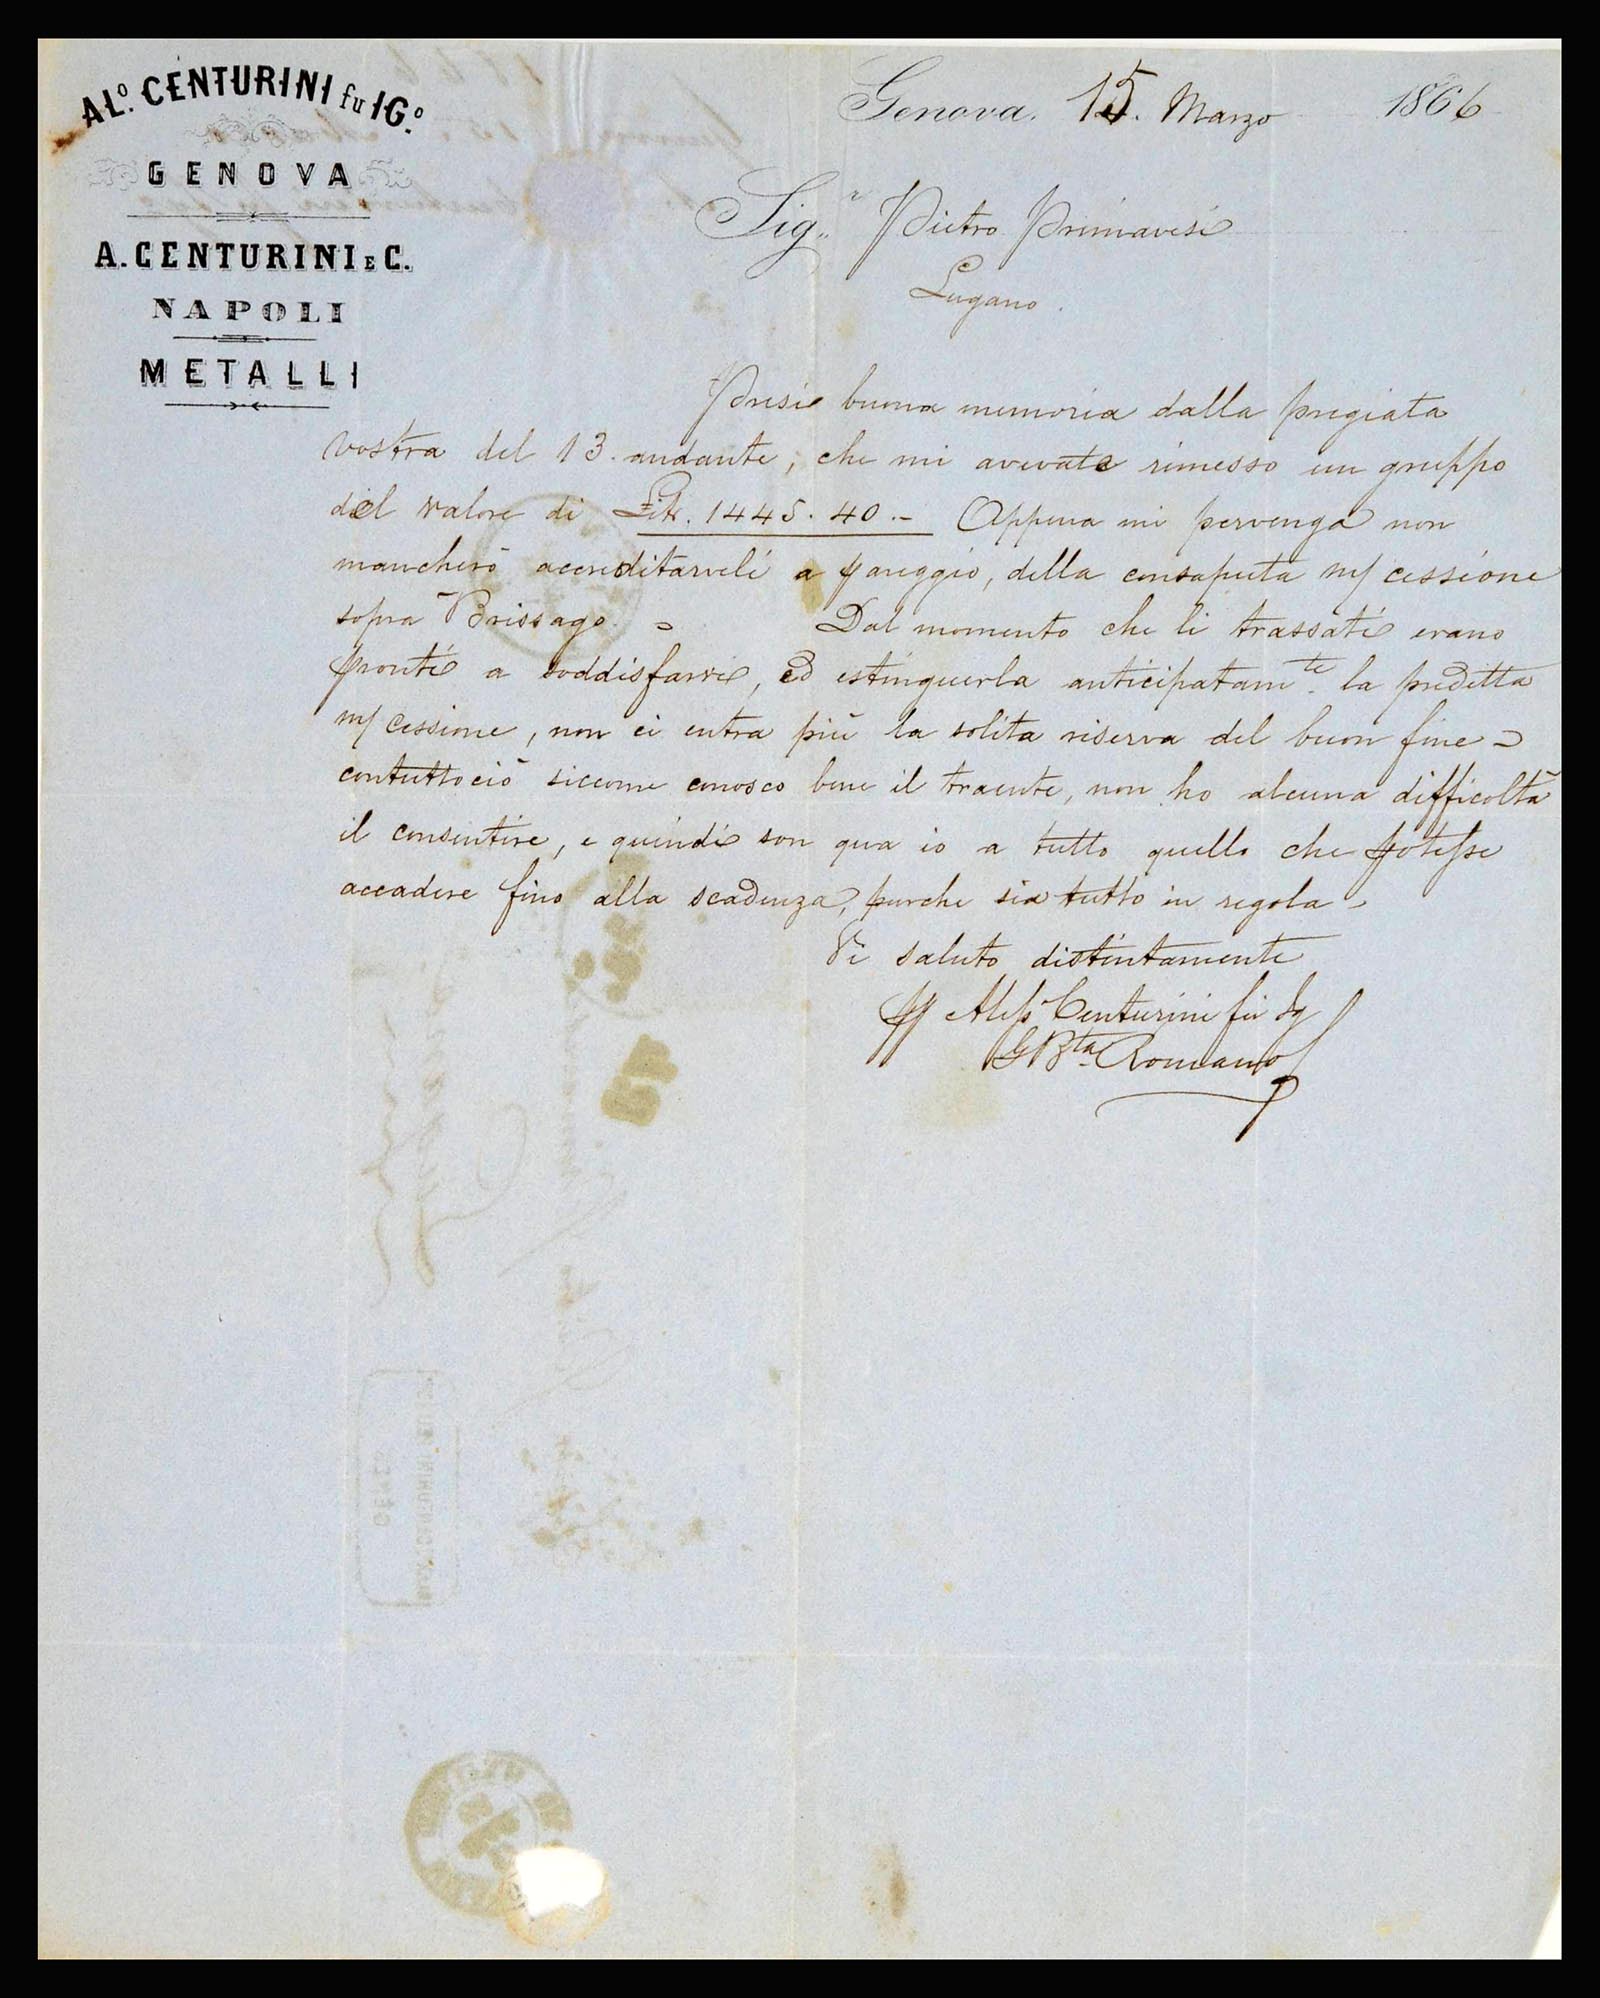 ALº. CENTURINI fu IGº.
GENOVA
A. CENTURINI E C.
NAPOLI
METALLI
Genova. 15. Marzo 1866
Sigʳ Pietro Primavesi
Lugano.
Presi buona memoria dalla pregiata
vostra del 13. andante, che mi avevate rimesso un gruppo
del valore di Lit. 1445.40.- Appena mi pervenga non
mancherò accreditarveli a pareggio, della consaputa m/ cessione
sopra Brissago. = Dal momento che li trassati erano
pronti a soddisfarvi, ed estinguerla anticipatamᵗᵉ. la predetta
m/ cessione, non ci entra più la solita riserva del buon fine =
contuttociò siccome conosco bene il traente, non ho alcuna difficoltà
il consentire, e quindi son qua io a tutto quello che potesse
accadere fino alla scadenza, purche sia tutto in regola -
Vi saluto distintamente
Aless Centurini fu Ig
GBᵗᵃ. Romano